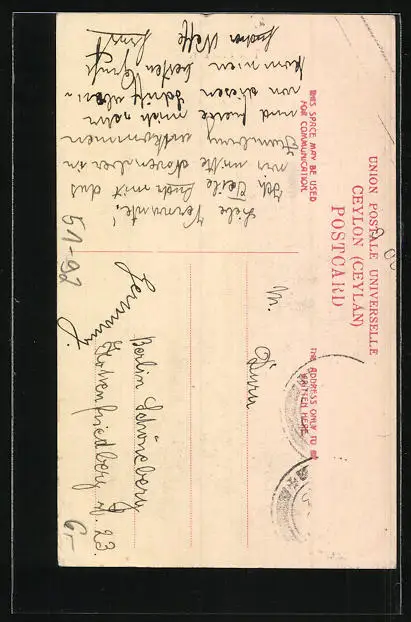 UNION POSTALE UNIVERSELLE
CEYLON (CEYLAN)
POSTCARD
THIS SPACE MAY BE USED
FOR COMMUNICATION
THE ADDRESS ONLY TO BE
WRITTEN HERE
Liebe Verwandte!
Ich Teile Euch mit das
wir mitte November in
Hamburg ankommen
und freue mich sehr
von diesen Schiff
kommen besten Gruß
Neffe
Ernst
51-92
M.
Dürr
Berlin Schöneberg
Hohenfriedberg
23
Germany.
6,-